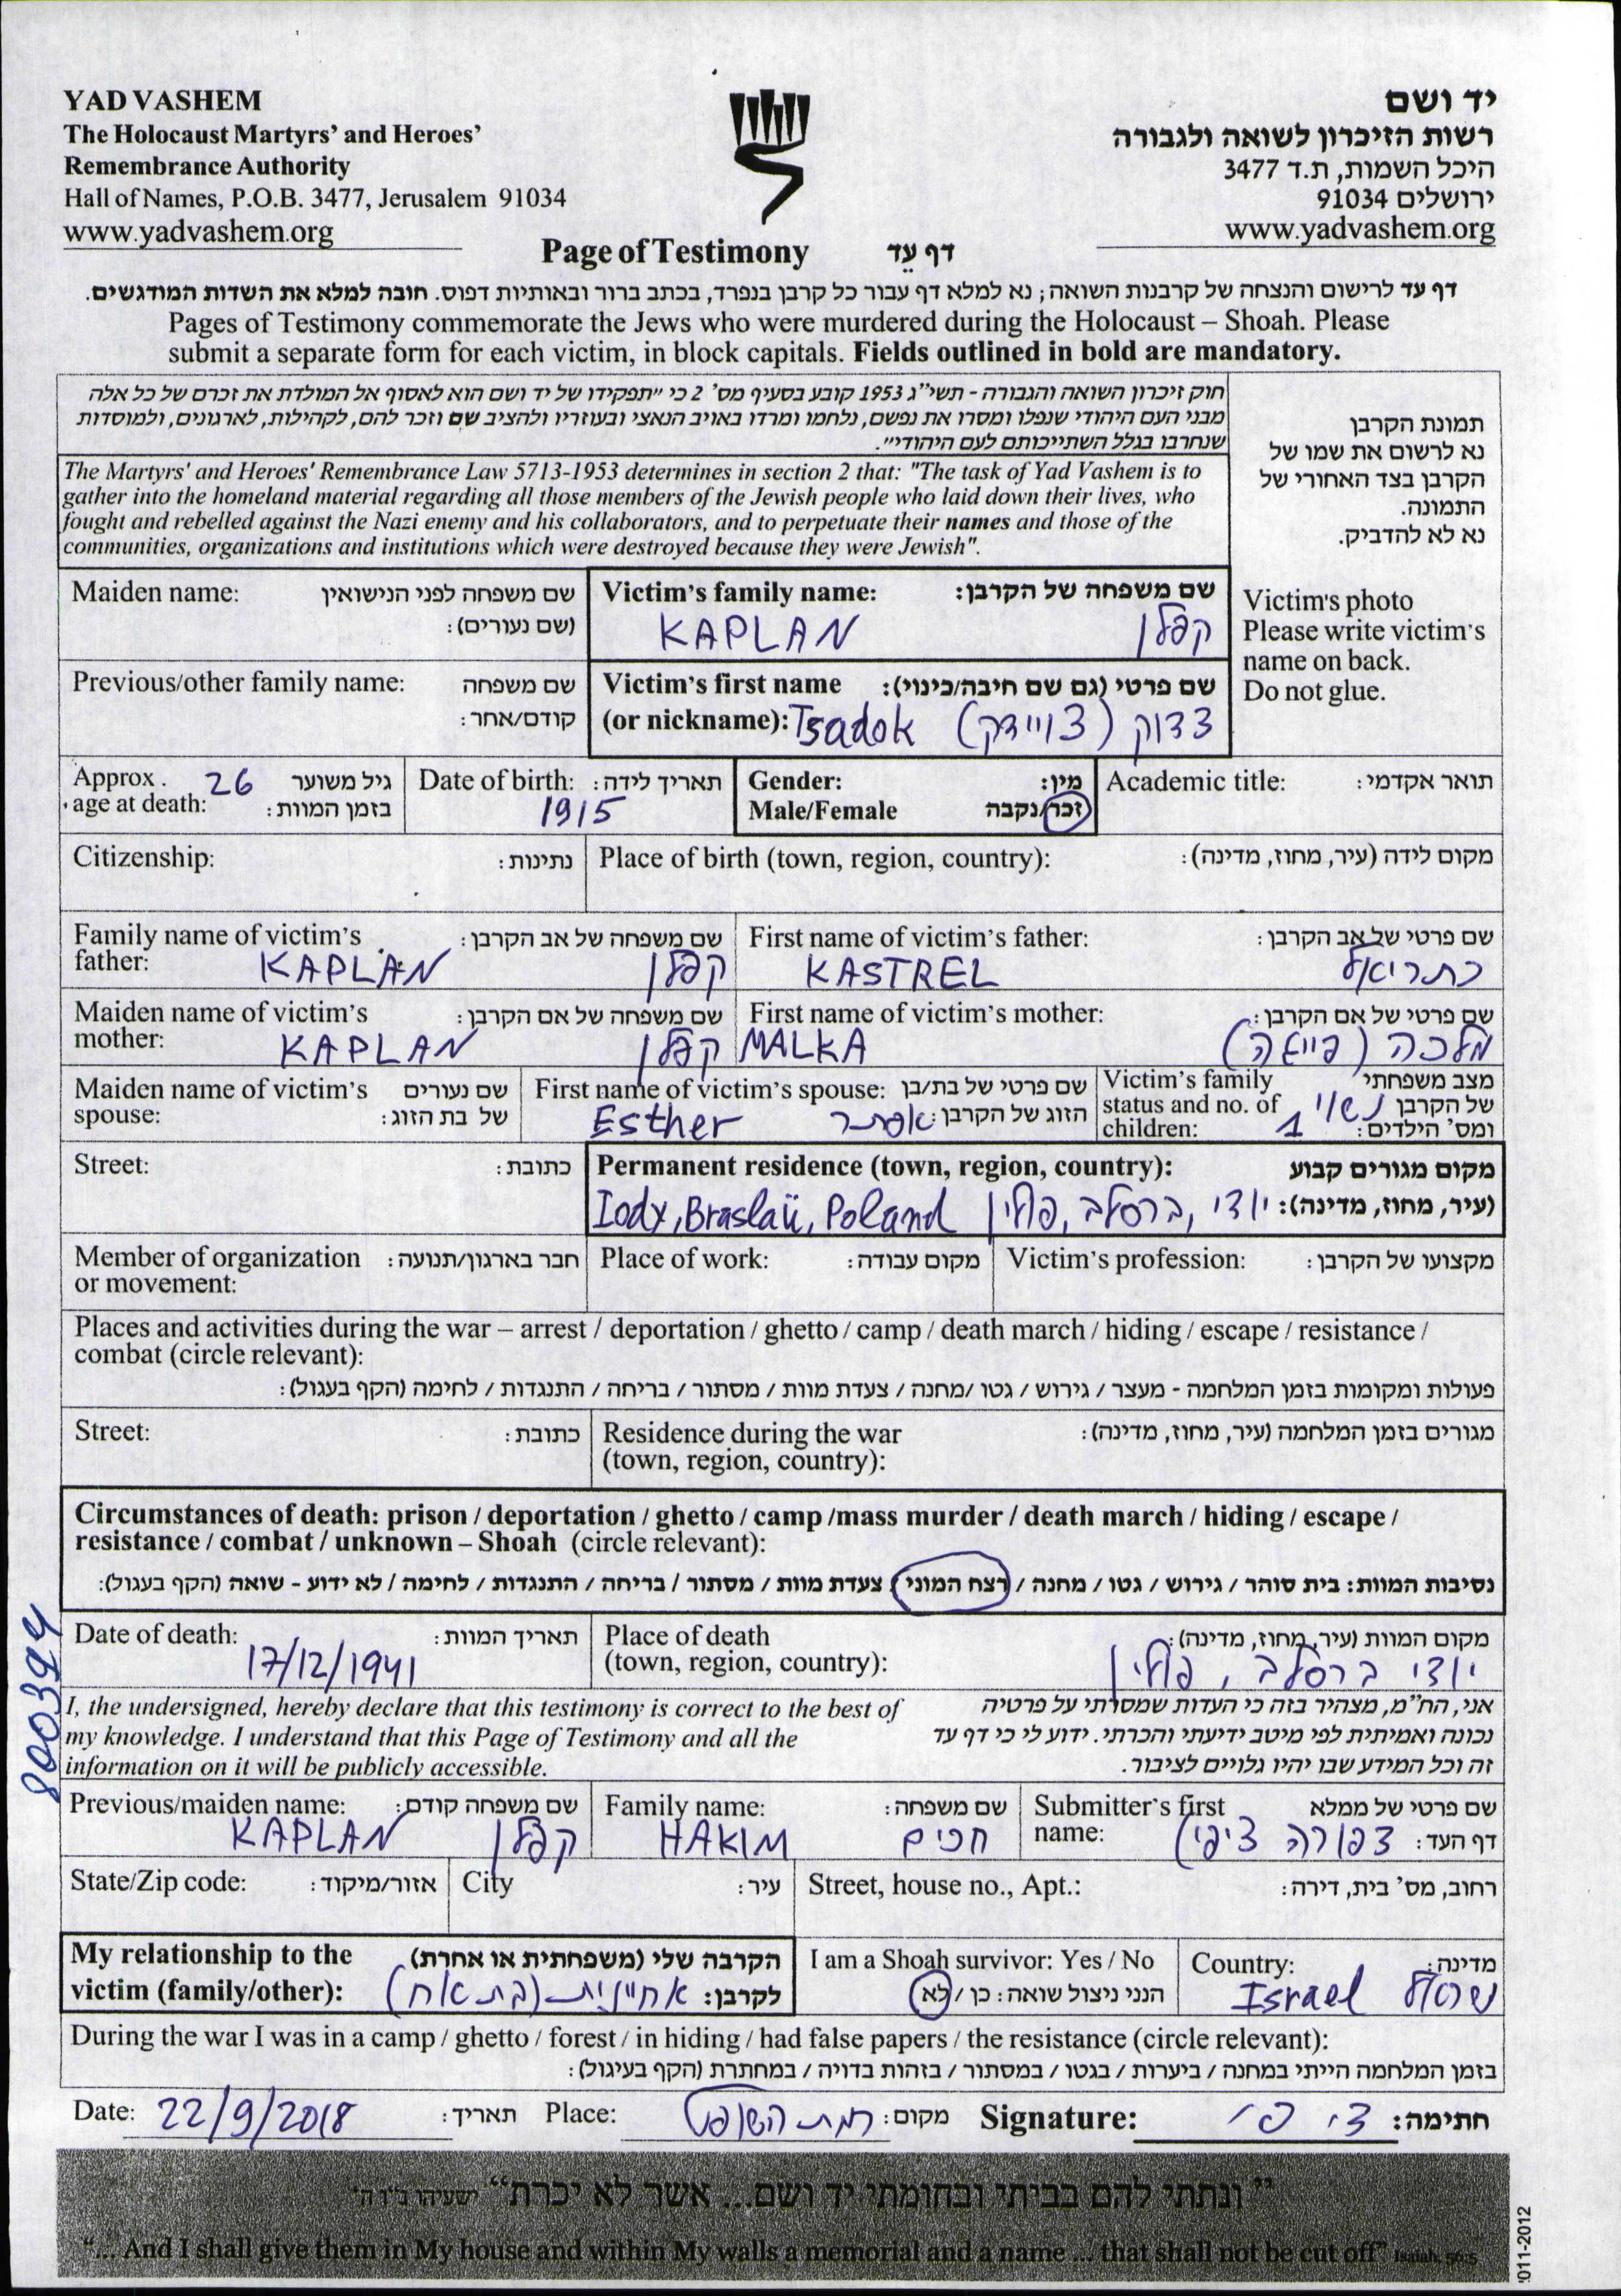 YAD VASHEM
The Holocaust Martyrs' and Heroes'
Remembrance Authority
Hall of Names, P.O.B. 3477, Jerusalem 91034
www.yadvashem.org
יד ושם
רשות הזיכרון לשואה ולגבורה
היכל השמות, ת.ד 3477
ירושלים 91034
www.yadvashem.org
Page of Testimony דף עֵד
דף עד לרישום והנצחה של קרבנות השואה; נא למלא דף עבור כל קרבן בנפרד, בכתב ברור ובאותיות דפוס. חובה למלא את השדות המודגשים.
Pages of Testimony commemorate the Jews who were murdered during the Holocaust – Shoah. Please
submit a separate form for each victim, in block capitals. Fields outlined in bold are mandatory.
חוק זיכרון השואה והגבורה - תשי"ג 1953 קובע בסעיף מס' 2 כי "תפקידו של יד ושם הוא לאסוף אל המולדת את זכרם של כל אלה
מבני העם היהודי שנפלו ומסרו את נפשם, נלחמו ומרדו באויב הנאצי ובעוזריו ולהציב שם וזכר להם, לקהילות, לארגונים, ולמוסדות
שנחרבו בגלל השתייכותם לעם היהודי".
The Martyrs' and Heroes' Remembrance Law 5713-1953 determines in section 2 that: "The task of Yad Vashem is to
gather into the homeland material regarding all those members of the Jewish people who laid down their lives, who
fought and rebelled against the Nazi enemy and his collaborators, and to perpetuate their names and those of the
communities, organizations and institutions which were destroyed because they were Jewish".
תמונת הקרבן
נא לרשום את שמו של
הקרבן בצד האחורי של
התמונה.
נא לא להדביק.
Victim's photo
Please write victim's
name on back.
Do not glue.
Maiden name: שם משפחה לפני הנישואין
(שם נעורים):
Victim's family name: שם משפחה של הקרבן:
KAPLAN קפלן
Previous/other family name: שם משפחה
קודם/אחר:
Victim's first name שם פרטי (גם שם חיבה/כינוי):
(or nickname): Tsadok צדוק (צויידק)
Approx. 26 גיל משוער
age at death: בזמן המוות:
Date of birth: תאריך לידה:
1915
Gender: מין:
Male/Female זכר/נקבה
Academic title: תואר אקדמי:
Citizenship: נתינות:
Place of birth (town, region, country): מקום לידה (עיר, מחוז, מדינה):
Family name of victim's שם משפחה של אב הקרבן:
father: KAPLAN קפלן
First name of victim's father: שם פרטי של אב הקרבן:
KASTREL כתריאל
Maiden name of victim's שם משפחה של אם הקרבן:
mother: KAPLAN קפלן
First name of victim's mother: שם פרטי של אם הקרבן:
MALKA מלכה (פייגה)
Maiden name of victim's שם נעורים
spouse: של בת הזוג:
First name of victim's spouse: שם פרטי של בת/בן
Esther הזוג של הקרבן: אסתר
Victim's family מצב משפחתי
status and no. of של הקרבן נשוי
children: 1 ומס' הילדים:
Street: כתובת:
Permanent residence (town, region, country): מקום מגורים קבוע
Iody, Braslaü, Poland (עיר, מחוז, מדינה): יודי, ברסלב, פולין
Member of organization חבר בארגון/תנועה:
or movement:
Place of work: מקום עבודה:
Victim's profession: מקצועו של הקרבן:
Places and activities during the war – arrest / deportation / ghetto / camp / death march / hiding / escape / resistance /
combat (circle relevant):
פעולות ומקומות בזמן המלחמה - מעצר / גירוש / גטו /מחנה / צעדת מוות / מסתור / בריחה / התנגדות / לחימה (הקף בעגול):
Street: כתובת:
Residence during the war מגורים בזמן המלחמה (עיר, מחוז, מדינה):
(town, region, country):
Circumstances of death: prison / deportation / ghetto / camp /mass murder / death march / hiding / escape /
resistance / combat / unknown – Shoah (circle relevant):
נסיבות המוות: בית סוהר / גירוש / גטו / מחנה / רצח המוני / צעדת מוות / מסתור / בריחה / התנגדות / לחימה / לא ידוע - שואה (הקף בעגול):
Date of death: תאריך המוות:
17/12/1941
Place of death מקום המוות (עיר, מחוז, מדינה):
(town, region, country): יודי ברסלב, פולין
I, the undersigned, hereby declare that this testimony is correct to the best of
my knowledge. I understand that this Page of Testimony and all the
information on it will be publicly accessible.
אני, הח"מ, מצהיר בזה כי העדות שמסרתי על פרטיה
נכונה ואמיתית לפי מיטב ידיעתי והכרתי. ידוע לי כי דף עד
זה וכל המידע שבו יהיו גלויים לציבור.
800394
Previous/maiden name: שם משפחה קודם:
KAPLAN קפלן
Family name: שם משפחה:
HAKIM חכים
Submitter's first שם פרטי של ממלא
name: דף העד: צפורה ציפי)
State/Zip code: אזור/מיקוד:
City עיר:
Street, house no., Apt.: רחוב, מס' בית, דירה:
My relationship to the הקרבה שלי (משפחתית או אחרת)
victim (family/other): לקרבן: אחיינית (בת אח)
I am a Shoah survivor: Yes / No
הנני ניצול שואה: כן / לא
Country: מדינה:
Israel ישראל
During the war I was in a camp / ghetto / forest / in hiding / had false papers / the resistance (circle relevant):
בזמן המלחמה הייתי במחנה / ביערות / בגטו / במסתור / בזהות בדויה / במחתרת (הקף בעיגול):
Date: 22/9/2018 תאריך: Place: רמת השופט מקום: Signature: ציפי חתימה:
"ונתתי להם בביתי ובחומתי יד ושם... אשר לא יכרת" ישעיהו נ"ו ה'
"... And I shall give them in My house and within My walls a memorial and a name ... that shall not be cut off" Isaiah, 56:5
011-2012